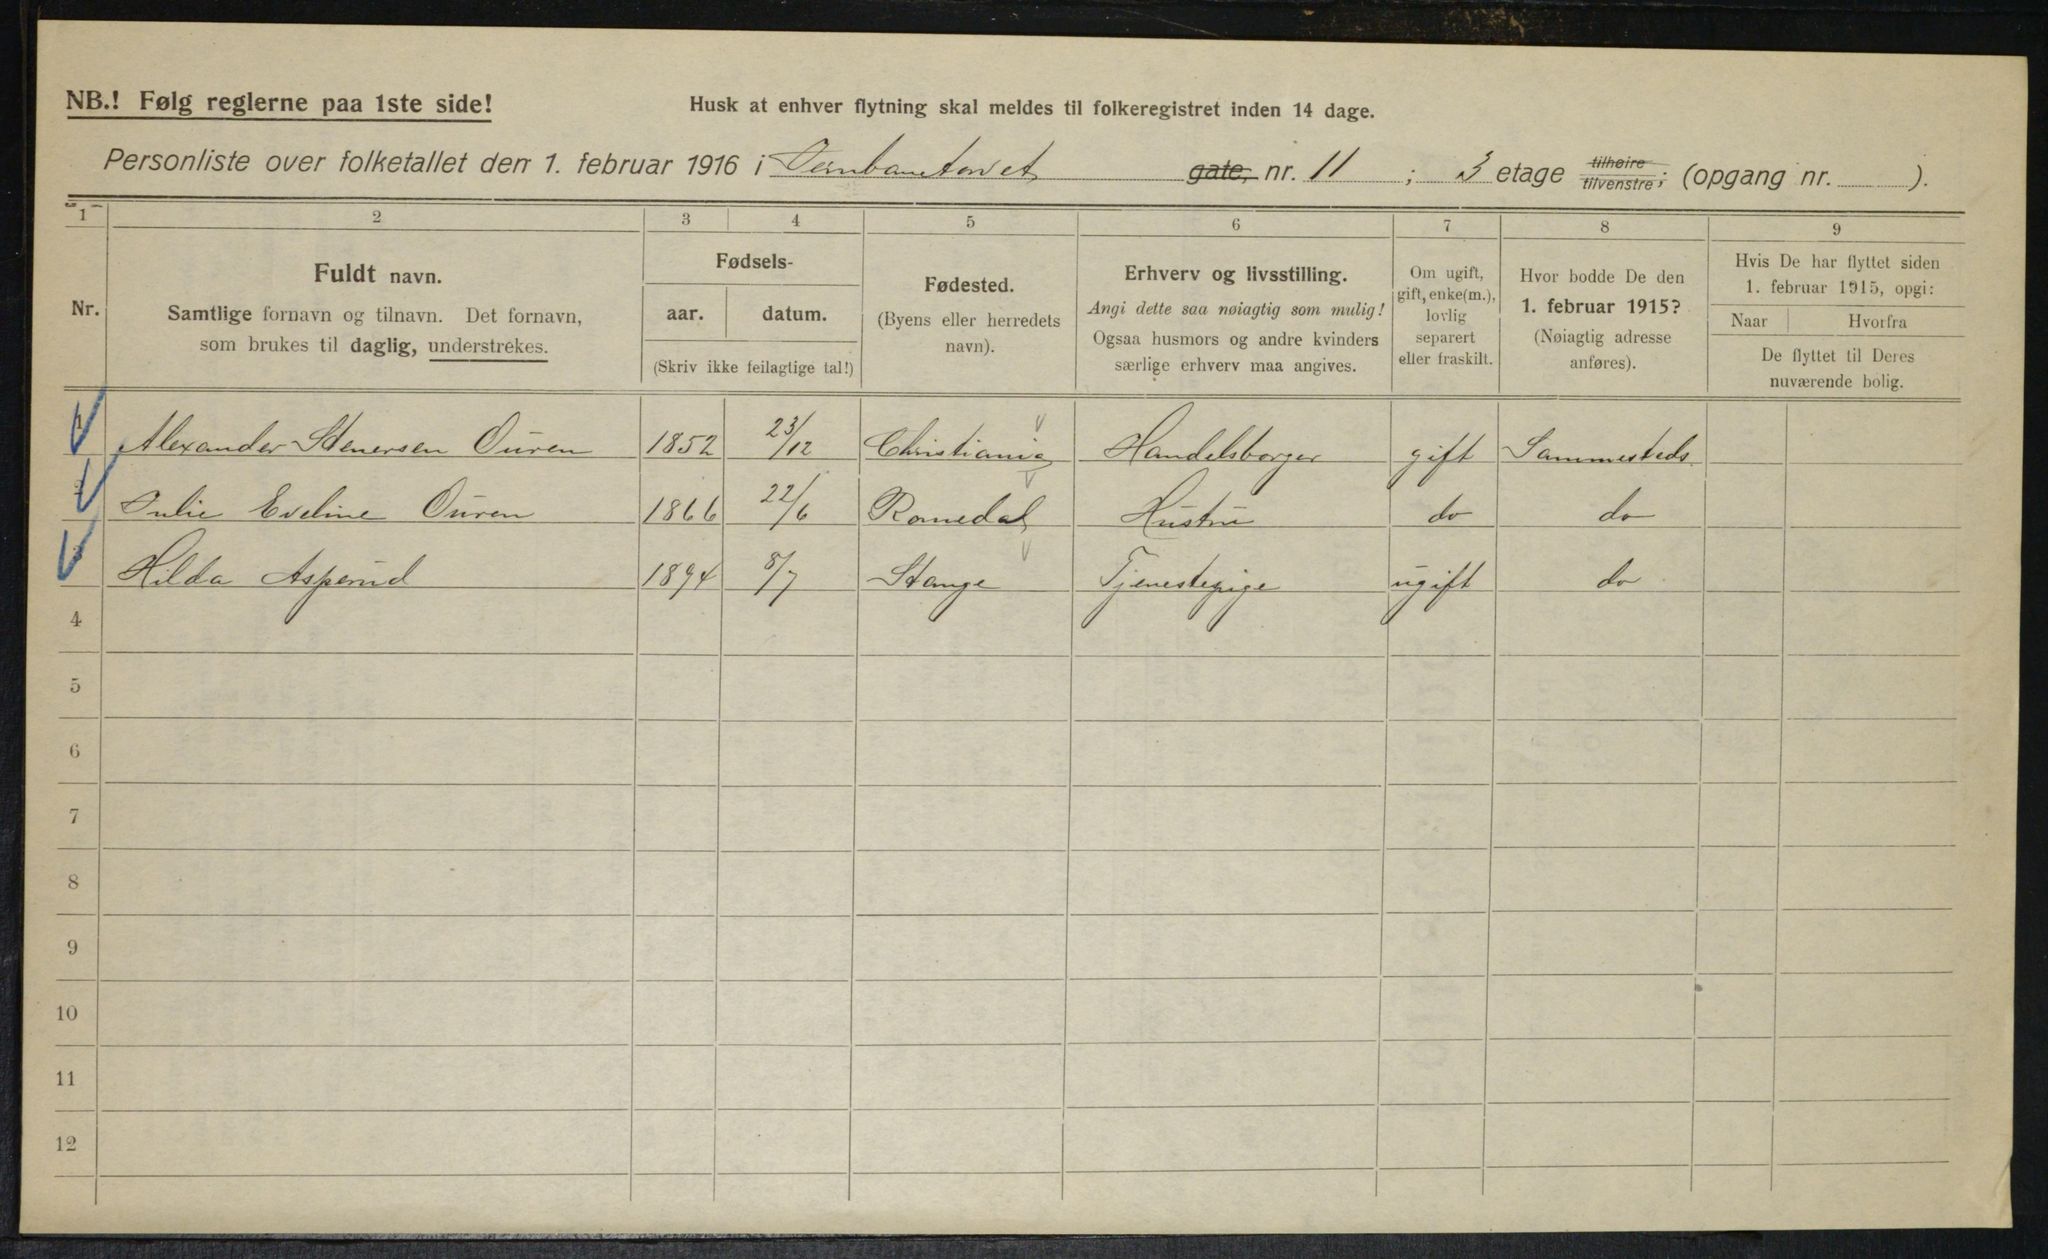 NB.! Følg reglerne paa 1ste side!
Husk at enhver flytning skal meldes til folkeregistret inden 14 dage.
Personliste over folketallet den 1. februar 1916 i Jernbanetorvet gate, nr. 11 ; 3 etage tilhøire tilvenstre; (opgang nr. ).
1 2 3 4 5 6 7 8 9
Nr.
Fuldt navn.
Samtlige fornavn og tilnavn. Det fornavn,
som brukes til daglig, understrekes.
Fødsels-
aar. datum.
(Skriv ikke feilagtige tal!)
Fødested.
(Byens eller herredets
navn).
Erhverv og livsstilling.
Angi dette saa nøiagtig som mulig!
Ogsaa husmors og andre kvinders
særlige erhverv maa angives.
Om ugift,
gift, enke(m.),
lovlig
separert
eller fraskilt.
Hvor bodde De den
1. februar 1915?
(Nøiagtig adresse
anføres).
Hvis De har flyttet siden
1. februar 1915, opgi:
Naar Hvorfra
De flyttet til Deres
nuværende bolig.
1 Alexander Stenersen Ouren 1852 23/12 Christiania Handelsborger gift Sammesteds
2 Julie Eveline Ouren 1866 22/6 Romedal Hustru do do
3 Hilda Asperud 1894 8/7 Stange Tjenestepige ugift do
4
5
6
7
8
9
10
11
12